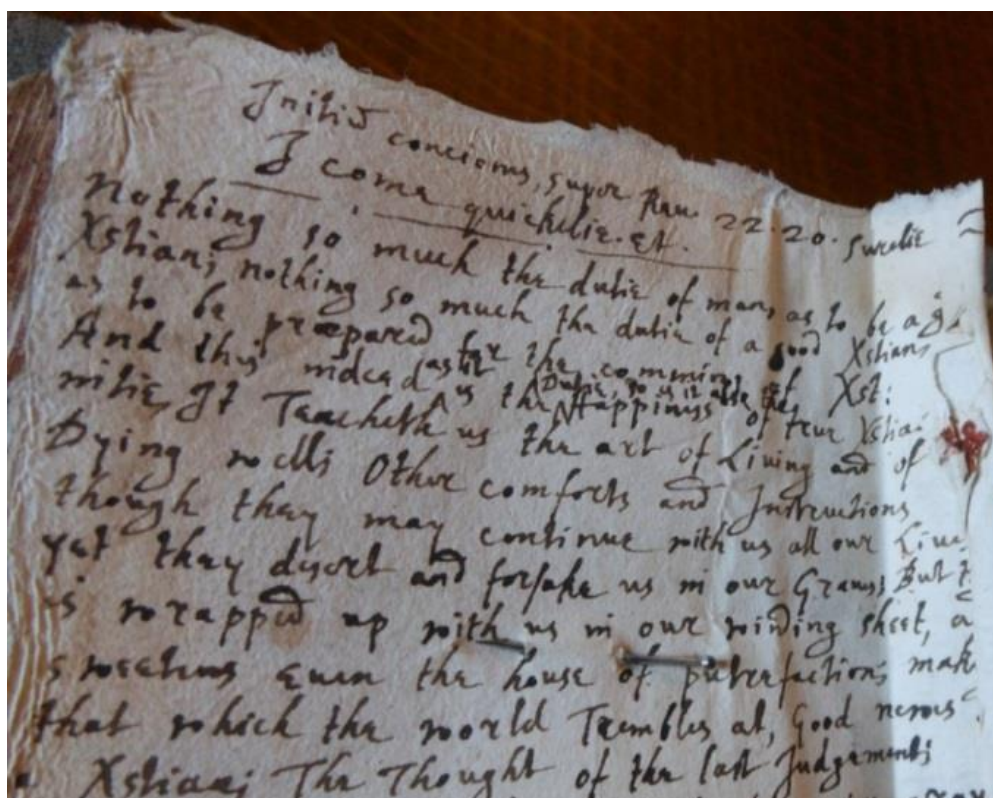 Initiũ concionis, super Reu. 22.20. Surelie
I come quickelie. et.
Nothing so much the dutie of man, as to be a g
Xstian; nothing so much the dutie of a good Xstian,
as to be prepared for the comming of Xst:
And this indeed as tis the Dutie, so is it alsoe the Happiness of true Xstia
nitie, It Teacheth us the art of Living and of
Dying well; Other comforts and Instructions
though they may continue with us all our Liues
yet they desert and forsake us in our Graues, But
is wrapped up with us in our winding sheet, a
sweetens euen the house of putrefaction; mak
that which the world Trembles at, Good newes
Xstian; The Thought of the last Judgement;